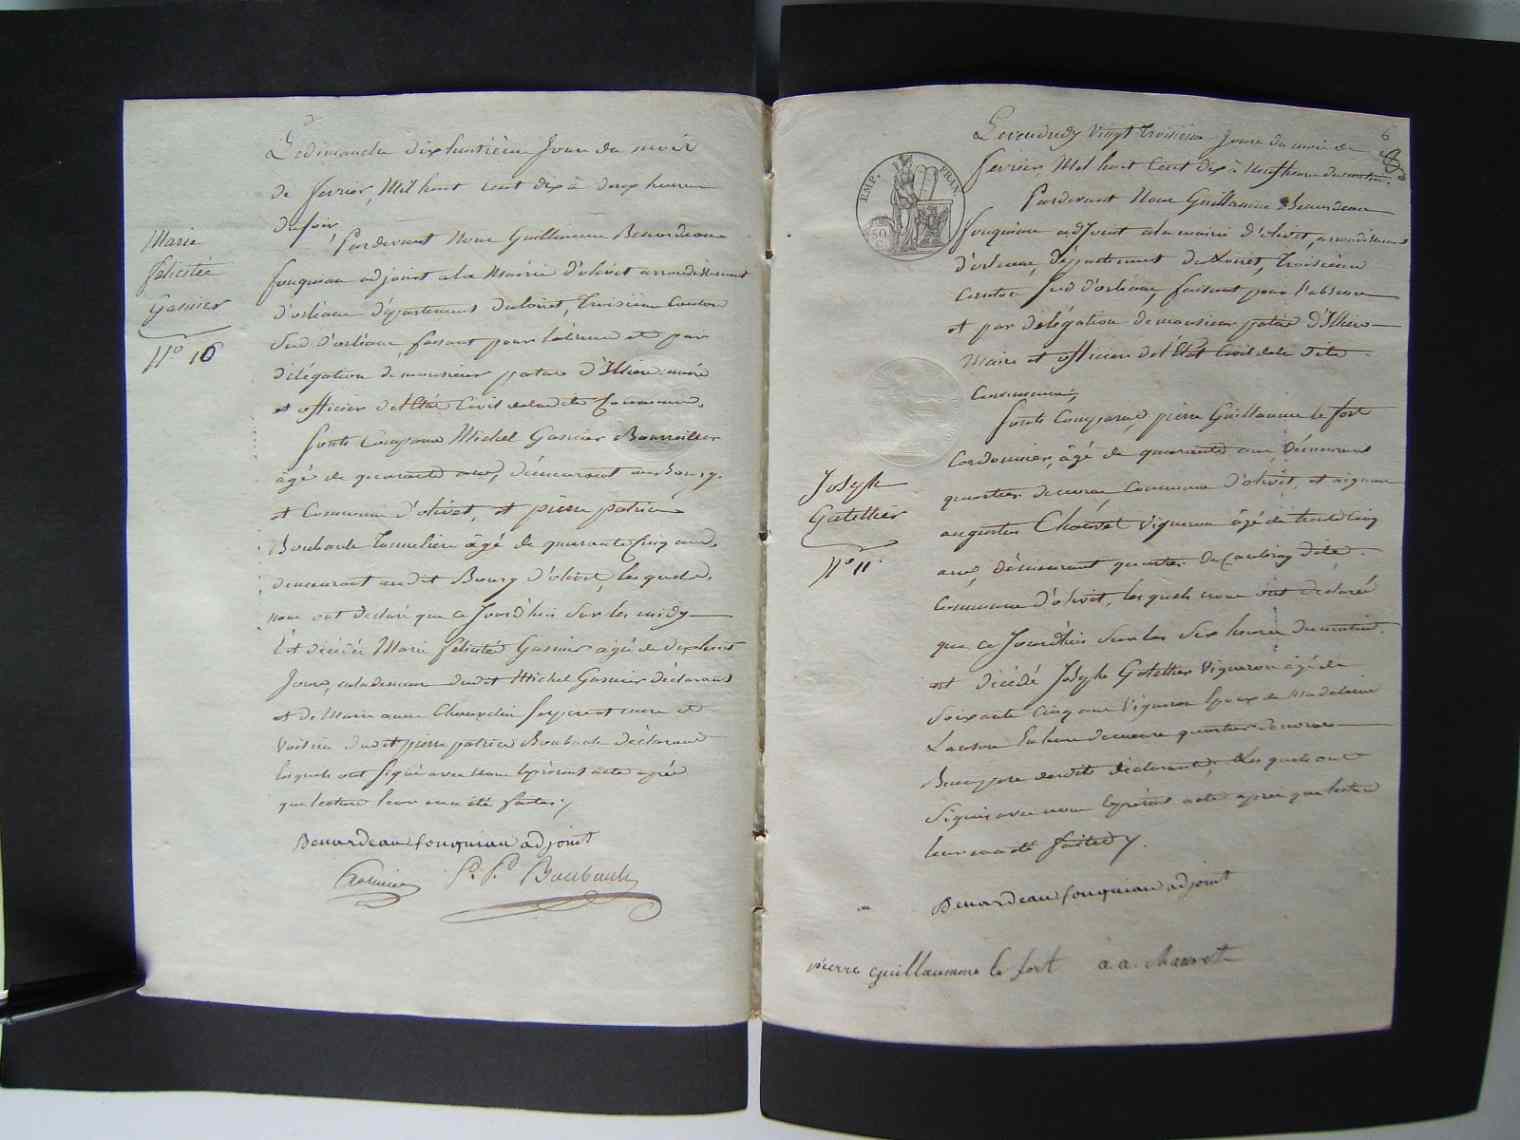 Le dimanche dixhuitième Jour du mois
de fevrier, Mil huit cent dix à deux heures
du soir,
Pardevant Nous Guillaume Benardeau
fouqueau adjoint à la Mairie d'olivet arrondissement
d'orléans département du loiret, troisième Canton
Sud d'orléans, faisant pour l'absence et par
délégation de monsieur patas d'Illiers maire
et officier de l'Etat Civil de la dite Commune.
Sont Comparus Michel Gasnier Bourrellier
âgé de quarante ans, demeurant au Bourg
et Commune d'olivet, et pierre patrice
Boubault tonnelier âgé de quarante Cinq ans
demeurant au dit Bourg d'olivet, lesquels
nous ont declaré que ce Jourd'hui Sur les midy
Est décédée Marie felicitée Gasnier âgée de dix huit
Jours, en la demeure du dit Michel Gasnier déclarant
et de Marie anne Chauvelin ses pere et mere et
Voisin du dit pierre patrice Boubault déclarant
lesquels ont Signé avec Nous le présent acte après
que lecture leur en a été faite ./
Benardeau fouquiau adjoint
Gasnier P. P. Boubault
Marie
felicitée
Gasnier
No 10
6
Le vendredy Vingt troisieme Jour du mois de
fevrier, Mil huit Cent Dix à Neuf heures du matin.
EMP. FRAN.
50
Pardevant Nous Guillaume Benardeau
fouquiau adjoint à la mairie d'olivet, arrondissement
d'orléans, Département du Loiret, troisième
Canton Sud d'orléans, faisant pour l'absence
et par délégation de monsieur patas d'Illiers
Maire et officier de l'Etat Civil de la Dite
Commune,
Sont Comparus, pierre Guillaume le fort
Cordonnier, âgé de quarante ans, Démeurant
quartier Commune d'olivet, et aignan
augustin Chauvet Vigneron âgé de trente Cinq
ans, Démeurant quartier de Caubray dite
Commune d'olivet, lesquels nous ont declaré
que ce Jourd'hui Sur les Six heures du matin.
est décédé Joseph Gatellier Vigneron âgé de
Soixante Cinq ans Vigneron Epoux de Madelaine
en la demeure quartier
Beaupere du dit déclarant, Lesquels ont
Signés avec nous le présent acte après que lecture
leur en a été faitte ./.
Benardeau fouquiau adjoint
pierre guillaumme le fort a. a. Chauvet
Joseph
Gatellier
No 11